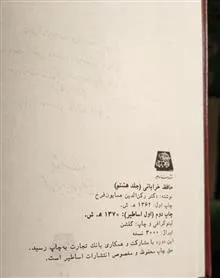 حافظ خراباتی (جلد هشتم)
نوشته: دکتر رکن‌الدین همایون‌فرخ
چاپ اول: ۱۳۶۲ هـ. ش.
چاپ دوم (اول اساطیر): ۱۳۷۰ هـ. ش.
لیتوگرافی و چاپ: گلشن
تیراژ: ۳۰۰۰ نسخه
این دوره با مشارکت و همکاری بانک تجارت به‌چاپ رسید.
حق چاپ محفوظ و مخصوص انتشارات اساطیر است.